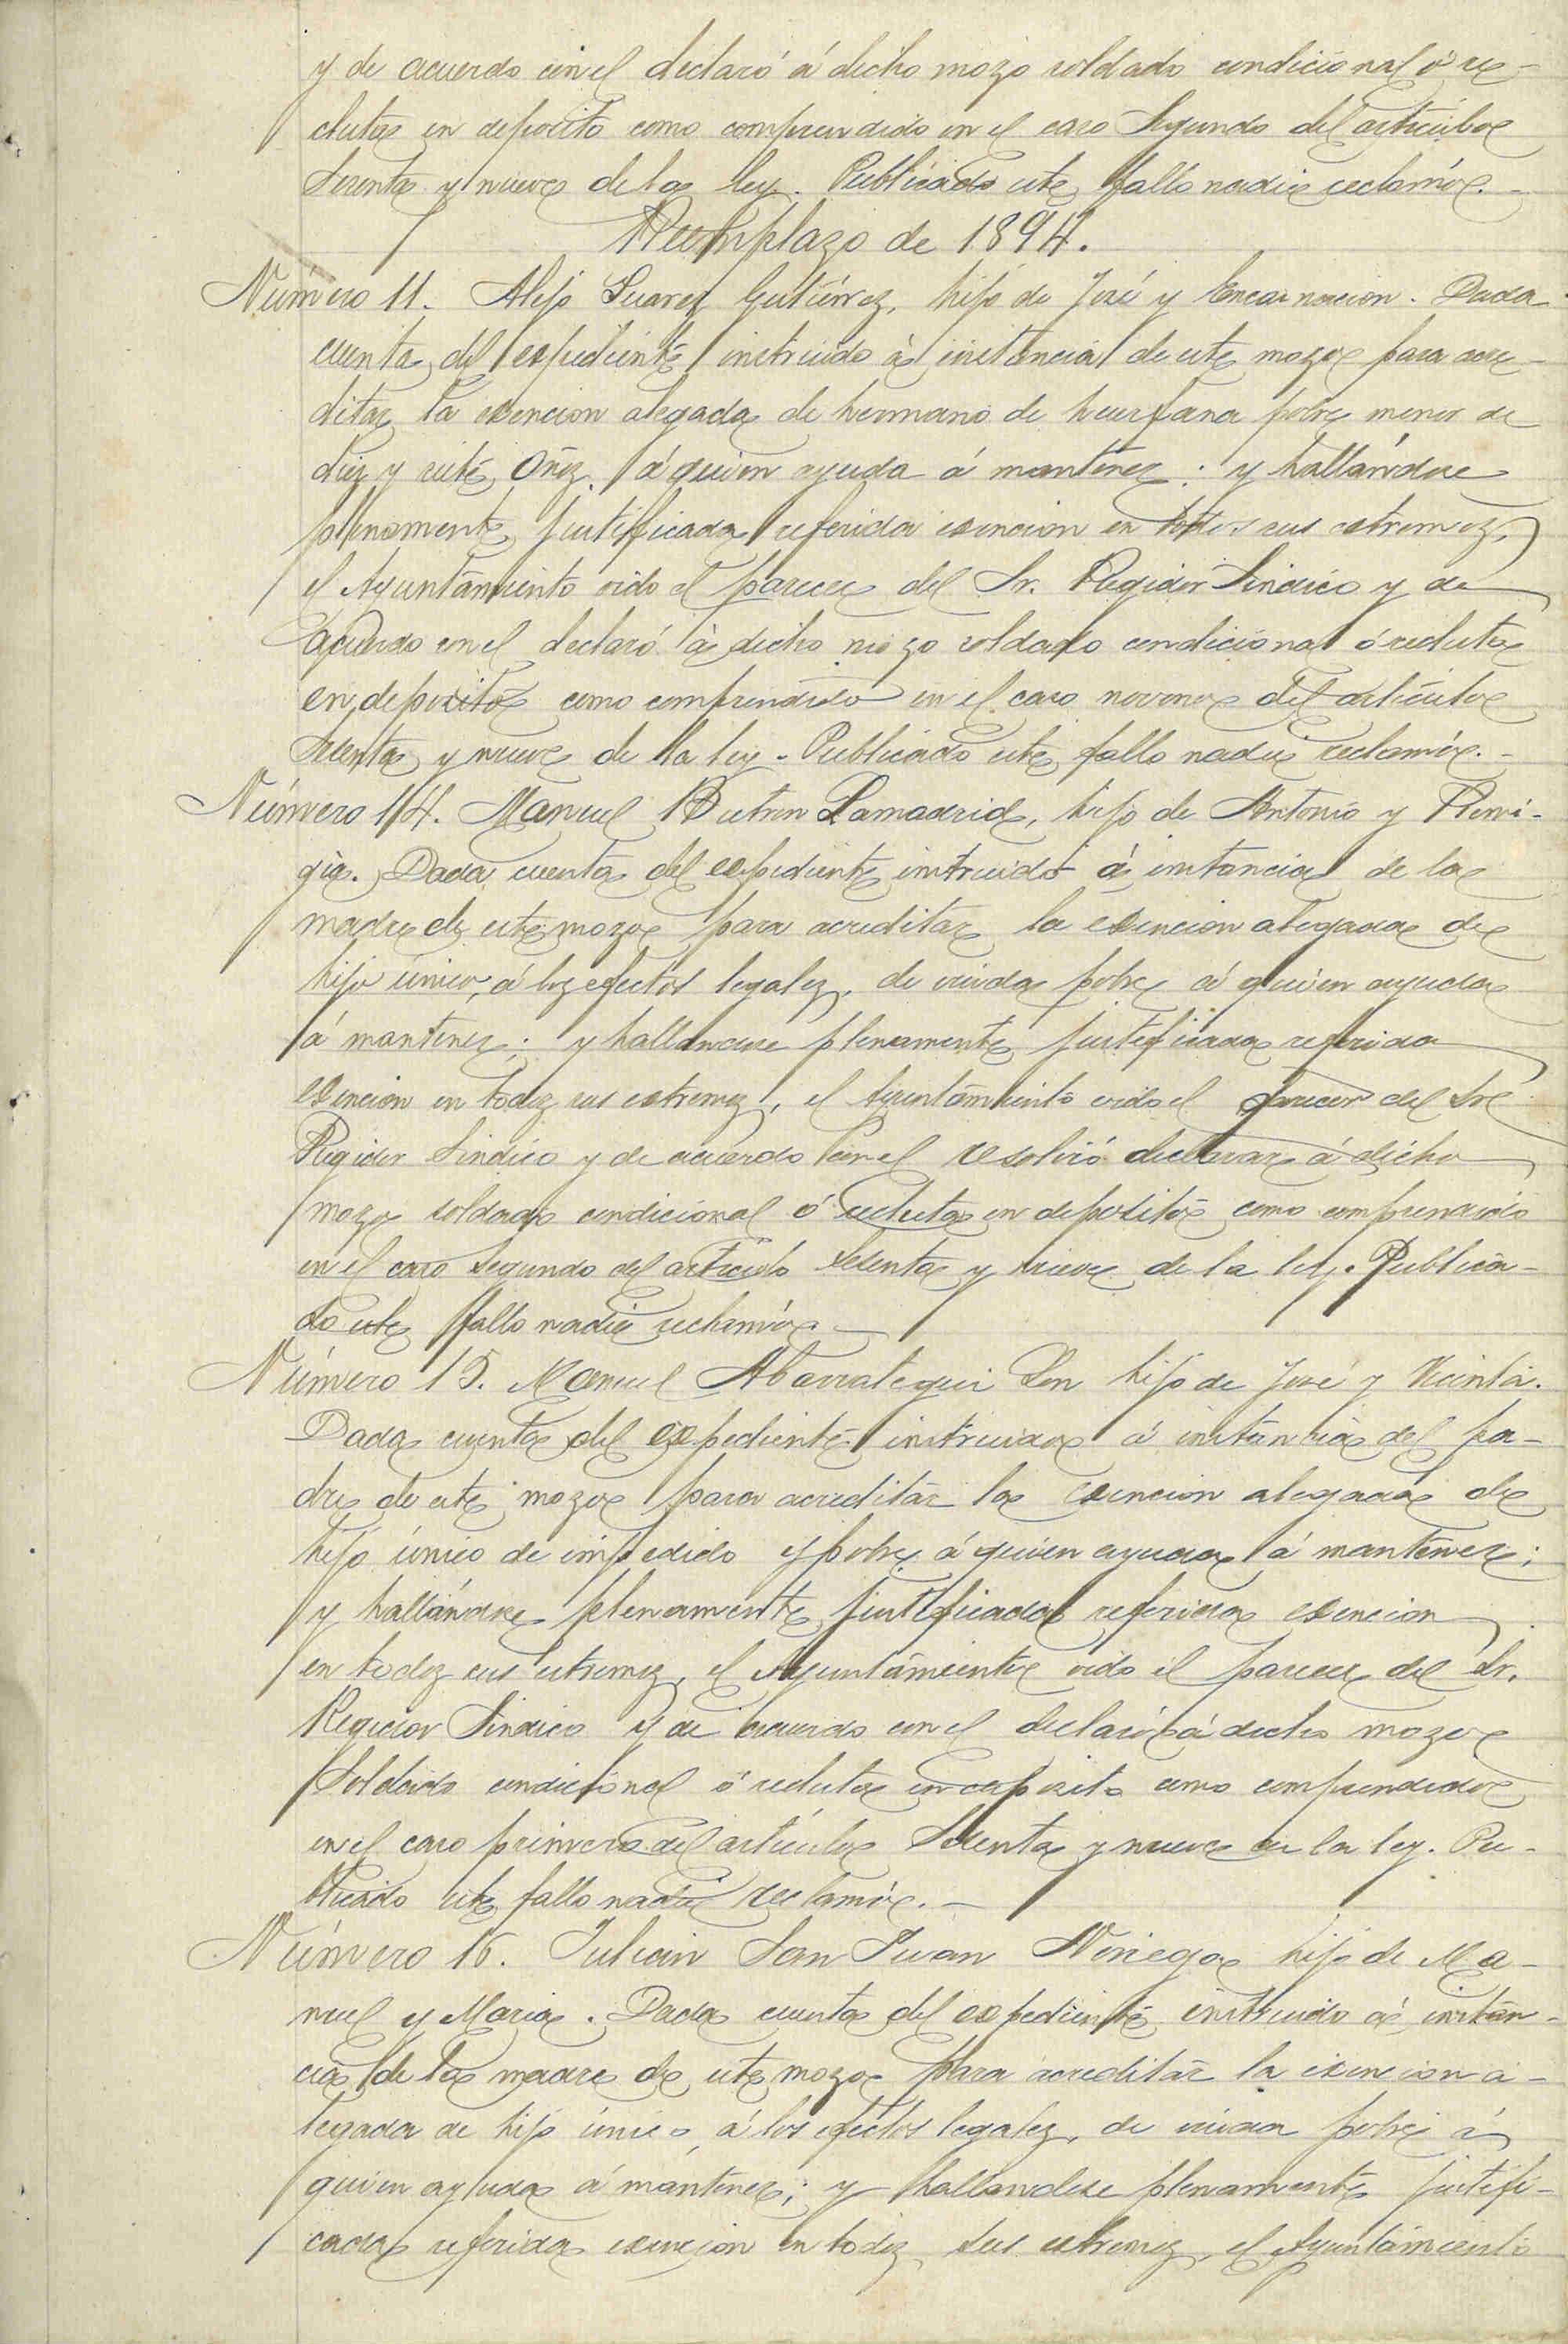 y de acuerdo con el declaró á dicho mozo soldado condicional ó re-
cluta en deposito como comprendido en el caso Segundo del artículo
Sesenta y nueve de la ley. Publicado este fallo nadie reclamó.-
Reemplazo de 1894.
Número 11. Alejo Suarez Gutiérrez, hijo de José y Encarnacion. Dada
cuenta del espediente instruido á instancia de este mozo para acre-
ditar la esencion alegada de hermano de huerfana pobre menor de
diez y siete años, á quien ayuda á mantener; y hallándose
plenamente justificada referida esencion en todos sus estremos,
el Ayuntamiento oido el parecer del Sr. Regidor Sindico y de
acuerdo con el declaró á dicho mozo soldado condicional ó recluta
en deposito como comprendido en el caso noveno del artículo
Sesenta y nueve de la ley. Publicado este fallo nadie reclamó.-
Número 14. Manuel Butron Lamadrid, hijo de Antonio y Remi-
gia. Dada cuenta del espediente instruido á instancia de la
madre de este mozo para acreditar la esencion alegada de
hijo único, á los efectos legales, de viuda pobre á quien ayuda
á mantener; y hallandose plenamente justificada referida
esencion en todos sus estremos, el Ayuntamiento oido el parecer del Sr.
Regidor Sindico y de acuerdo con el resolvió declarar á dicho
mozo soldado condicional ó recluta en deposito como comprendido
en el caso segundo del artículo sesenta y nueve de la ley. Publica-
do este fallo nadie reclamó.-
Número 15. Manuel Abarrategui Son hijo de José y Vicenta.
Dada cuenta del espediente instruido á instancia del pa-
dre de este mozo para acreditar la esencion alegada de
hijo único de impedido y pobre á quien ayuda á mantener;
y hallándose plenamente justificada referida esencion
en todos sus estremos, el Ayuntamiento oido el parecer del Sr.
Regidor Sindico y de acuerdo con el declaró á dicho mozo
Soldado condicional ó recluta en deposito como comprendido
en el caso primero del artículo Sesenta y nueve de la ley. Pu-
blicado este fallo nadie reclamó.-
Número 16. Julian San Juan Noriega hijo de Ma-
nuel y Maria. Dada cuenta del espediente instruido á instan-
cia de la madre de este mozo para acreditar la esencion a-
legada de hijo único, á los efectos legales, de viuda pobre á
quien ayuda á mantener; y hallandose plenamente justifi-
cada referida esencion en todos sus estremos, el Ayuntamiento